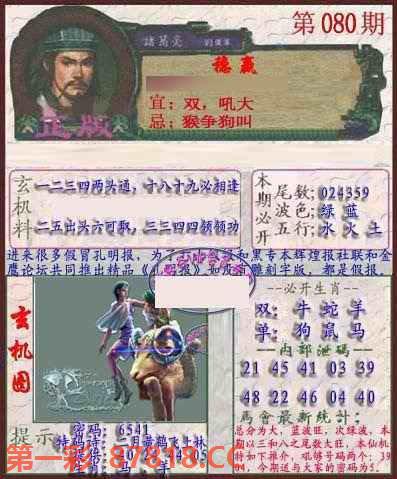 第080期
諸葛亮
劉僅軍
穩贏
宜：双，吼大
忌：猴争狗叫
正版
玄机料
一二三四两头通，十八十九必相逢
二五出头六可歌，三三四四领领功
本期必开
尾数：024359
波色：绿 蓝
五行：水 火 土
进来很多假冒孔明报，为了
和黑专本辉煌报社联和金
鹰论坛共同推出精品《孔明报》如没有雕刻字版，都是假报。
玄机图
--必开生肖--
双：牛 蛇 羊
单：狗 鼠 马
--内部泄码--
21 45 41 03 39
48 22 46 04 40
馬會最新統計：
总分为大，蓝波旺，次绿波，本
期以三和八之尾数大旺，本仙机
诗如下推介，吼够号码两个：39
04，今期送与大家的密码为5.
提示
密码：6541
特码诗：二月黄鹤飞上林
第一彩.87818.CC